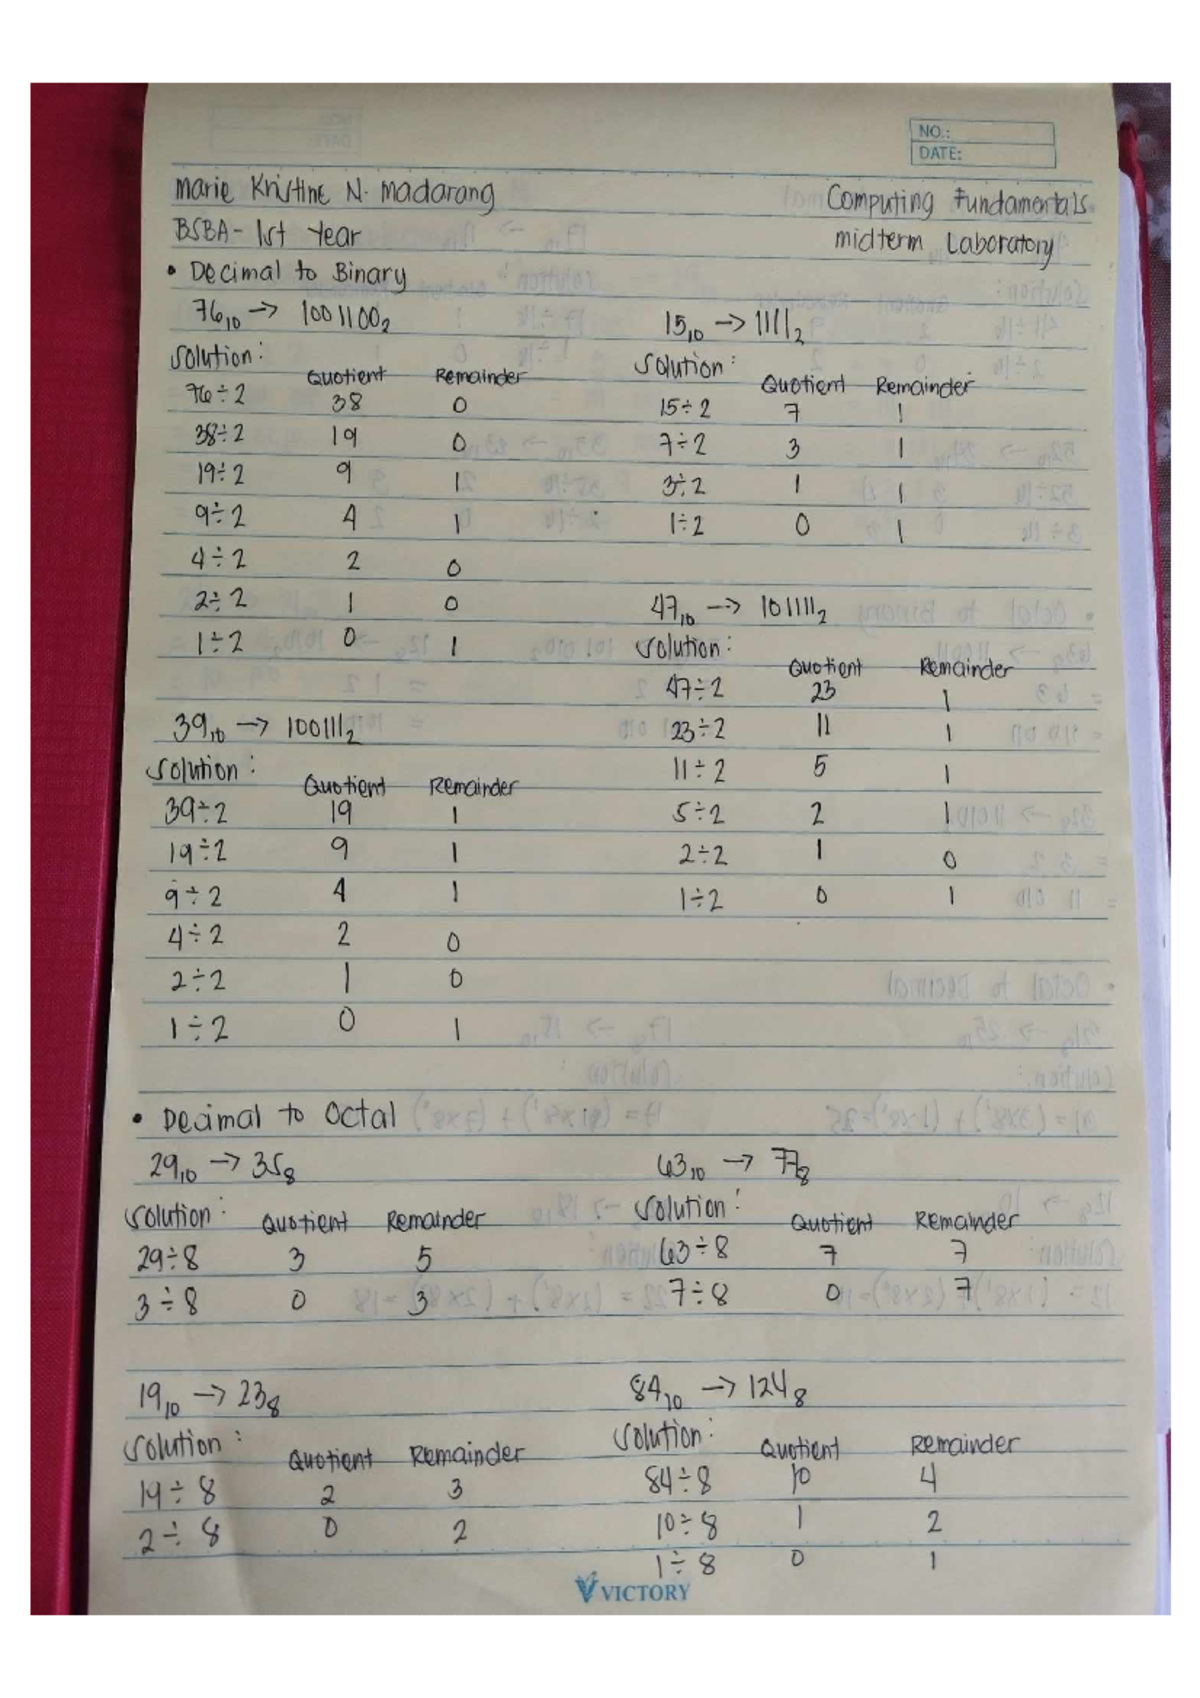 NO.:
DATE:
Marie Kristine N. Madarang
Computing Fundamentals
BSBA - 1st Year
midterm Laboratory
• Decimal to Binary
76₁₀ → 1001100₂
Solution:
Quotient Remainder
76÷2 38 0
38÷2 19 0
19÷2 9 1
9÷2 4 1
4÷2 2 0
2÷2 1 0
1÷2 0 1
15₁₀ → 1111₂
Solution:
Quotient Remainder
15÷2 7 1
7÷2 3 1
3÷2 1 1
1÷2 0 1
39₁₀ → 100111₂
Solution:
Quotient Remainder
39÷2 19 1
19÷2 9 1
9÷2 4 1
4÷2 2 0
2÷2 1 0
1÷2 0 1
47₁₀ → 101111₂
Solution:
Quotient Remainder
47÷2 23 1
23÷2 11 1
11÷2 5 1
5÷2 2 1
2÷2 1 0
1÷2 0 1
• Decimal to Octal
29₁₀ → 35₈
Solution: Quotient Remainder
29÷8 3 5
3÷8 0 3
63₁₀ → 77₈
Solution: Quotient Remainder
63÷8 7 7
7÷8 0 7
19₁₀ → 23₈
Solution: Quotient Remainder
19÷8 2 3
2÷8 0 2
84₁₀ → 124₈
Solution: Quotient Remainder
84÷8 10 4
10÷8 1 2
1÷8 0 1
VICTORY